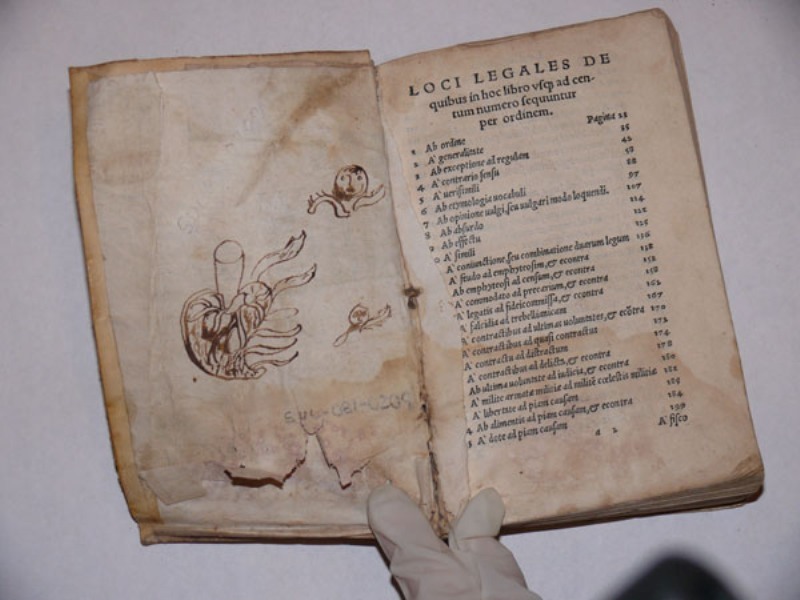 LOCI LEGALES DE
quibus in hoc libro vsq; ad cen-
tum numero sequuntur
per ordinem.
1 Ab ordine Pagina 21
2 A' generalitate 35
3 Ab exceptione ad regulam 42
4 A' contrario sensu 58
5 A' uerisimili 88
6 Ab etymologia uocabuli 97
7 Ab opinione uulgi, seu uulgari modo loquendi. 107
8 Ab absurdo 114
9 Ab effectu 122
A' simili 125
A' coniunctione, seu combinatione duarum legum 136
A' feudo ad emphyteosim, & econtra 138
Ab emphyteosi ad censum, & econtra 152
A' commodato ad precarium, & econtra 158
A' legatis ad fideicommissa, & econtra 162
A' falcidia ad trebellianicam 167
A' contractibus ad ultimas uoluntates, & ecõtra 170
A' contractibus ad quasi contractus 172
A' contractu ad distractum 174
A' contractibus ad delicta, & econtra 178
Ab ultima uoluntate ad iudicia, & econtra 180
A' milite armatæ militiæ ad militẽ cœlestis militiæ 182
A' libertate ad piam causam 183
4 Ab alimentis ad piam causam, & econtra 184
5 A' dote ad piam causam 190
a 2 A' fisco